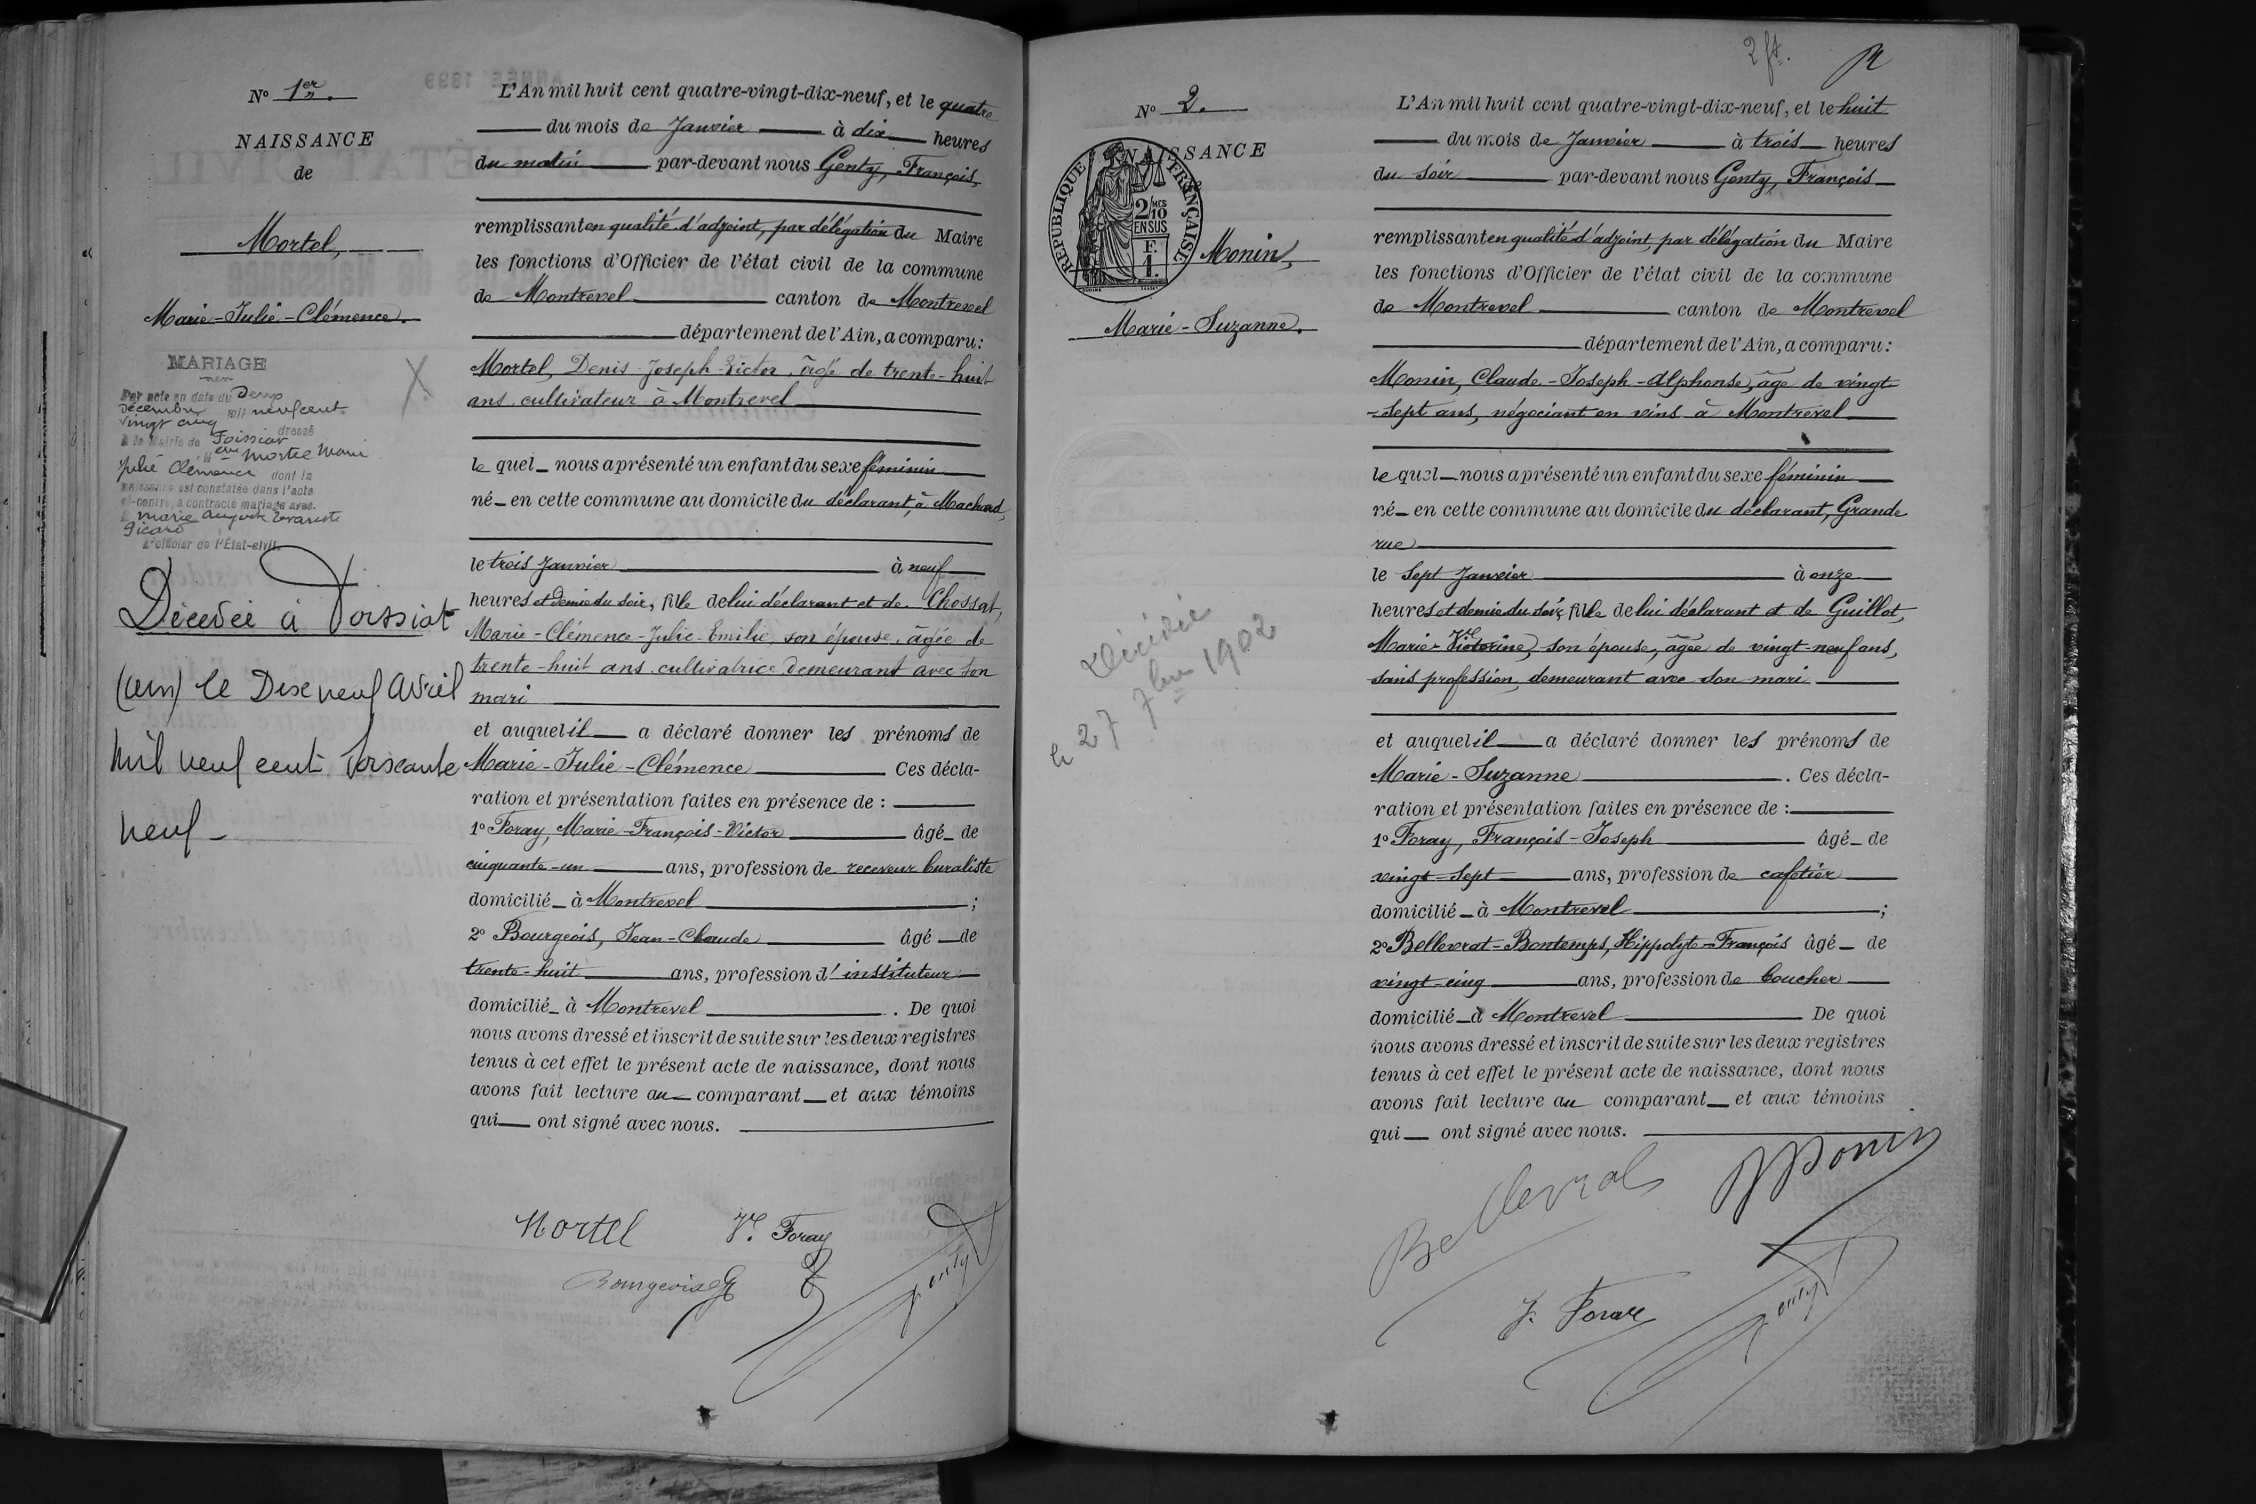 N° 1er
NAISSANCE
de
Mortel,
Marie-Julie-Clémence.
MARIAGE
Par acte en date du Deux
Décembre mil neuf cent
vingt cinq dressé
à la Mairie de Foissiat
Mortel Marie
Julie Clémence dont la
naissance est constatée dans l'acte
ci-contre, a contracté mariage avec
Marie Auguste Evariste
Picard
L'officier de l'État-civil,
Décédée à Foissiat
(Ain) le Dix neuf Avril
Mil neuf cent soixante
neuf
L'An mil huit cent quatre-vingt-dix-neuf, et le quatre
du mois de Janvier à dix heures
du matin par-devant nous Genty, François,
remplissant en qualité d'adjoint, par délégation du Maire
les fonctions d'Officier de l'état civil de la commune
de Montrevel canton de Montrevel
département de l'Ain, a comparu:
Mortel, Denis-Joseph-Victor, âgé de trente-huit
ans, cultivateur à Montrevel
le quel nous a présenté un enfant du sexe féminin
né en cette commune au domicile du déclarant, à Machard,
le trois Janvier à neuf
heures et demie du soir, fille de lui déclarant et de Chossat,
Marie-Clémence-Julie-Emilie, son épouse, âgée de
trente-huit ans, cultivatrice demeurant avec son
mari
et auquel il a déclaré donner les prénoms de
Marie-Julie-Clémence Ces décla-
ration et présentation faites en présence de :
1° Foray, Marie-François-Victor âgé de
cinquante-un ans, profession de receveur buraliste
domicilié à Montrevel ;
2° Bourgeois, Jean-Claude âgé de
trente-huit ans, profession d'instituteur
domicilié à Montrevel . De quoi
nous avons dressé et inscrit de suite sur les deux registres
tenus à cet effet le présent acte de naissance, dont nous
avons fait lecture au comparant et aux témoins
qui ont signé avec nous.
Mortel Vr. Foray
Bourgeois Genty
2 ft. 2
N° 2.
NAISSANCE
RÉPUBLIQUE FRANÇAISE
2/10 MES
EN SUS
F.
1.
Monin,
Marie-Suzanne.
Décédée
le 27 7bre 1902
L'An mil huit cent quatre-vingt-dix-neuf, et le huit
du mois de Janvier à trois heures
du soir par-devant nous Genty, François
remplissant en qualité d'adjoint, par délégation du Maire
les fonctions d'Officier de l'état civil de la commune
de Montrevel canton de Montrevel
département de l'Ain, a comparu:
Monin, Claude-Joseph-Alphonse, âgé de vingt
-sept ans, négociant en vins à Montrevel
le quel nous a présenté un enfant du sexe féminin
né en cette commune au domicile du déclarant, Grande
rue
le sept Janvier à onze
heures et demie du soir, fille de lui déclarant et de Guillot,
Marie-Victorine, son épouse, âgée de vingt-neuf ans,
sans profession, demeurant avec son mari
et auquel il a déclaré donner les prénoms de
Marie-Suzanne . Ces décla-
ration et présentation faites en présence de :
1° Foray, François-Joseph âgé de
vingt-sept ans, profession de cafetier
domicilié à Montrevel ;
2° Bellevrat-Bontemps, Hippolyte-François âgé de
vingt-cinq ans, profession de boucher
domicilié à Montrevel De quoi
nous avons dressé et inscrit de suite sur les deux registres
tenus à cet effet le présent acte de naissance, dont nous
avons fait lecture au comparant et aux témoins
qui ont signé avec nous.
Bellevrat Monin
F. Foray Genty